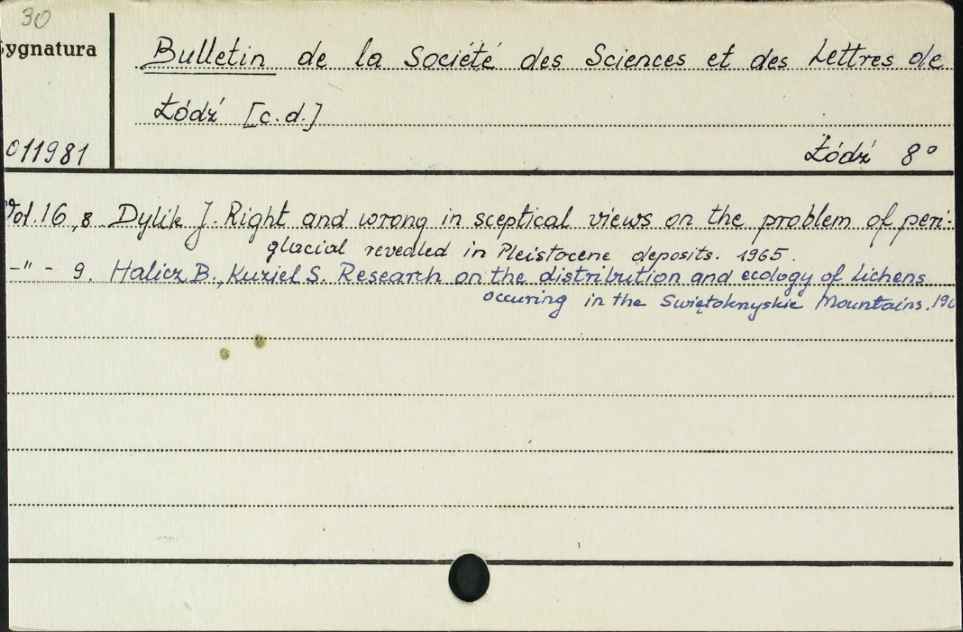 30
Sygnatura
Bulletin de la Société des Sciences et des Lettres de
Łódź [c.d.]
011981
Łódź 8°
Vol. 16, 8 Dylik J. Right and wrong in sceptical views on the problem of peri-
glacial revealed in Pleistocene deposits. 1965.
-"- 9. Halicz B., Kuziel S. Research on the distribution and ecology of lichens
occuring in the Swiętoknyskie Mountains.